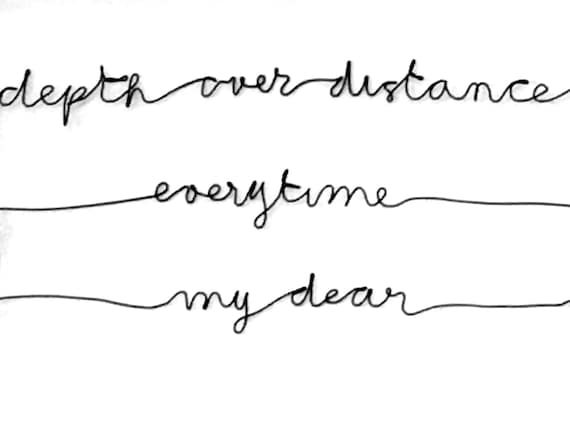 depth over distance
everytime
my dear